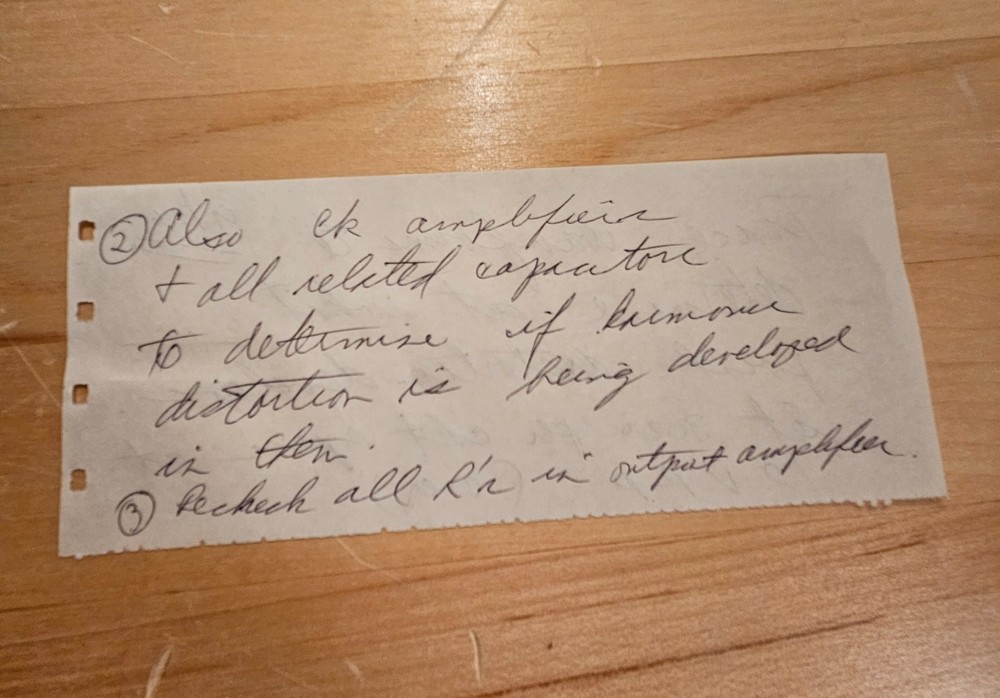 ② Also ck amplifiers
+ all related capacitors
to determine if harmonic
distortion is being developed
in them.
③ Recheck all R's in output amplifier.